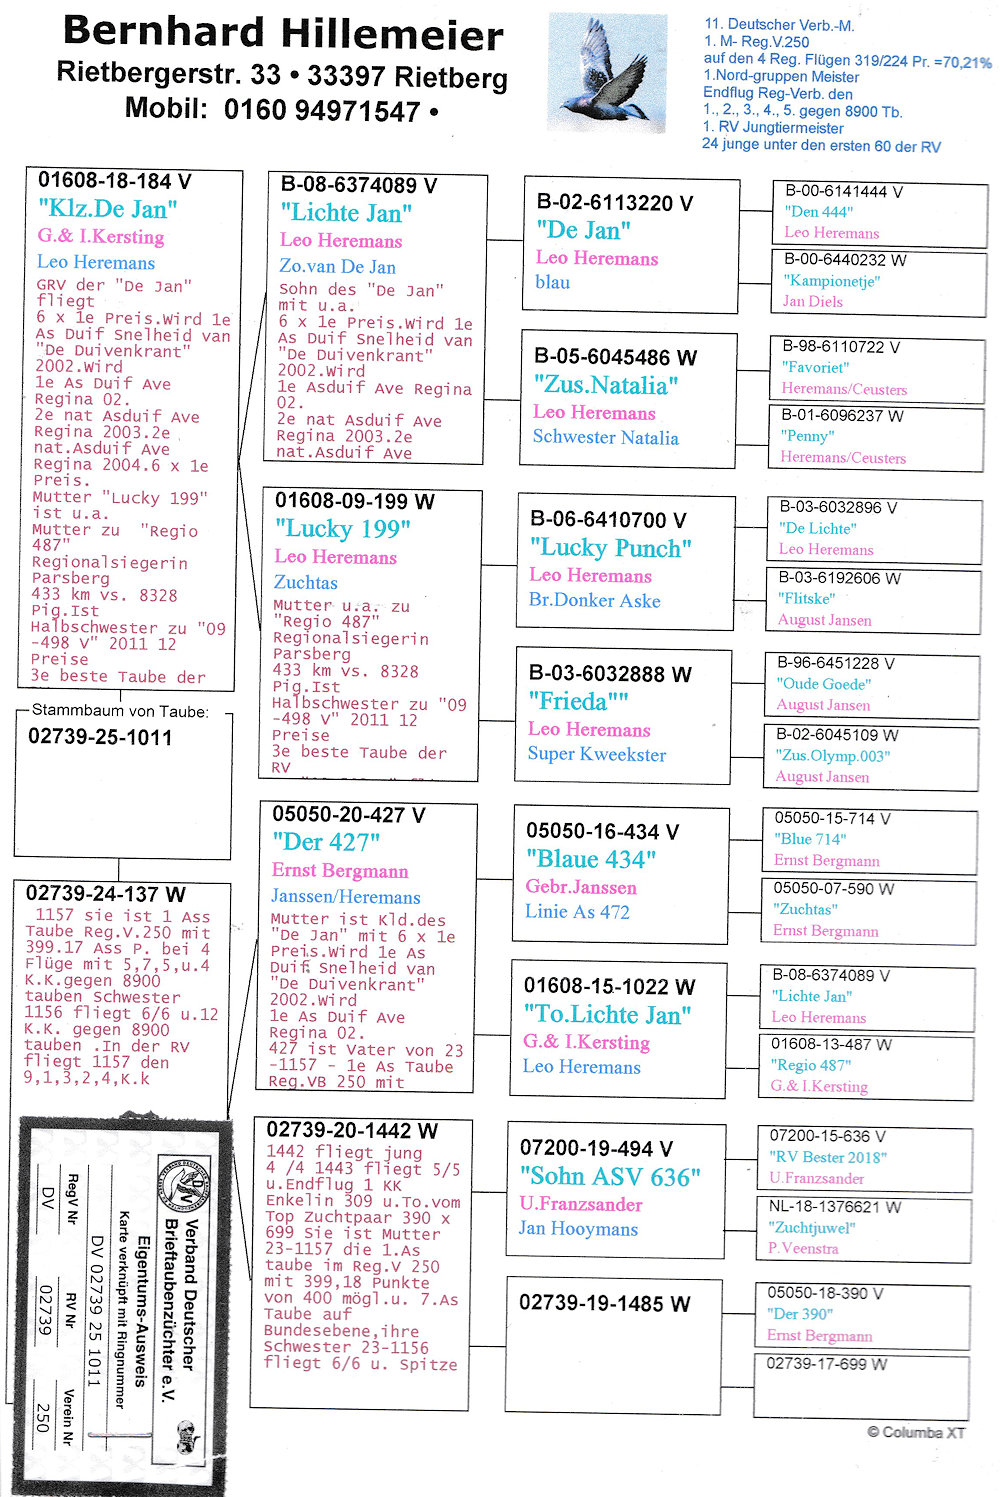 Bernhard Hillemeier
Rietbergerstr. 33 • 33397 Rietberg
Mobil: 0160 94971547 •
11. Deutscher Verb.-M.
1. M- Reg.V.250
auf den 4 Reg. Flügen 319/224 Pr. =70,21%
1.Nord-gruppen Meister
Endflug Reg-Verb. den
1., 2., 3., 4., 5. gegen 8900 Tb.
1. RV Jungtiermeister
24 junge unter den ersten 60 der RV
01608-18-184 V
"Klz.De Jan"
G.& I.Kersting
Leo Heremans
GRV der "De Jan"
fliegt
6 x 1e Preis.Wird 1e
As Duif Snelheid van
"De Duivenkrant"
2002.Wird
1e As Duif Ave
Regina 02.
2e nat Asduif Ave
Regina 2003.2e
nat.Asduif Ave
Regina 2004.6 x 1e
Preis.
Mutter "Lucky 199"
ist u.a.
Mutter zu "Regio
487"
Regionalsiegerin
Parsberg
433 km vs. 8328
Pig.Ist
Halbschwester zu "09
-498 V" 2011 12
Preise
3e beste Taube der
Stammbaum von Taube:
02739-25-1011
02739-24-137 W
1157 sie ist 1 Ass
Taube Reg.V.250 mit
399.17 Ass P. bei 4
Flüge mit 5,7,5,u.4
K.K.gegen 8900
tauben Schwester
1156 fliegt 6/6 u.12
K.K. gegen 8900
tauben .In der RV
fliegt 1157 den
9,1,3,2,4,K.k
B-08-6374089 V
"Lichte Jan"
Leo Heremans
Zo.van De Jan
Sohn des "De Jan"
mit u.a.
6 x 1e Preis.Wird 1e
As Duif Snelheid van
"De Duivenkrant"
2002.Wird
1e Asduif Ave Regina
02.
2e nat Asduif Ave
Regina 2003.2e
nat.Asduif Ave
01608-09-199 W
"Lucky 199"
Leo Heremans
Zuchtas
Mutter u.a. zu
"Regio 487"
Regionalsiegerin
Parsberg
433 km vs. 8328
Pig.Ist
Halbschwester zu "09
-498 V" 2011 12
Preise
3e beste Taube der
RV
05050-20-427 V
"Der 427"
Ernst Bergmann
Janssen/Heremans
Mutter ist Kld.des
"De Jan" mit 6 x 1e
Preis.Wird 1e As
Duif Snelheid van
"De Duivenkrant"
2002.Wird
1e As Duif Ave
Regina 02.
427 ist Vater von 23
-1157 - 1e As Taube
Reg.VB 250 mit
02739-20-1442 W
1442 fliegt jung
4 /4 1443 fliegt 5/5
u.Endflug 1 KK
Enkelin 309 u.To.vom
Top Zuchtpaar 390 x
699 Sie ist Mutter
23-1157 die 1.As
taube im Reg.V 250
mit 399,18 Punkte
von 400 mögl.u. 7.As
Taube auf
Bundesebene,ihre
Schwester 23-1156
fliegt 6/6 u. Spitze
B-02-6113220 V
"De Jan"
Leo Heremans
blau
B-05-6045486 W
"Zus.Natalia"
Leo Heremans
Schwester Natalia
B-06-6410700 V
"Lucky Punch"
Leo Heremans
Br.Donker Aske
B-03-6032888 W
"Frieda""
Leo Heremans
Super Kweekster
05050-16-434 V
"Blaue 434"
Gebr.Janssen
Linie As 472
01608-15-1022 W
"To.Lichte Jan"
G.& I.Kersting
Leo Heremans
07200-19-494 V
"Sohn ASV 636"
U.Franzsander
Jan Hooymans
02739-19-1485 W
B-00-6141444 V
"Den 444"
Leo Heremans
B-00-6440232 W
"Kampionetje"
Jan Diels
B-98-6110722 V
"Favoriet"
Heremans/Ceusters
B-01-6096237 W
"Penny"
Heremans/Ceusters
B-03-6032896 V
"De Lichte"
Leo Heremans
B-03-6192606 W
"Flitske"
August Jansen
B-96-6451228 V
"Oude Goede"
August Jansen
B-02-6045109 W
"Zus.Olymp.003"
August Jansen
05050-15-714 V
"Blue 714"
Ernst Bergmann
05050-07-590 W
"Zuchtas"
Ernst Bergmann
B-08-6374089 V
"Lichte Jan"
Leo Heremans
01608-13-487 W
"Regio 487"
G.& I.Kersting
07200-15-636 V
"RV Bester 2018"
U.Franzsander
NL-18-1376621 W
"Zuchtjuwel"
P.Veenstra
05050-18-390 V
"Der 390"
Ernst Bergmann
02739-17-699 W
© Columba XT
Verband Deutscher
Brieftaubenzüchter e.V.
Eigentums-Ausweis
Karte verknüpft mit Ringnummer
DV 02739 25 1011
RegV Nr
RV Nr
Verein Nr
DV
02739
250